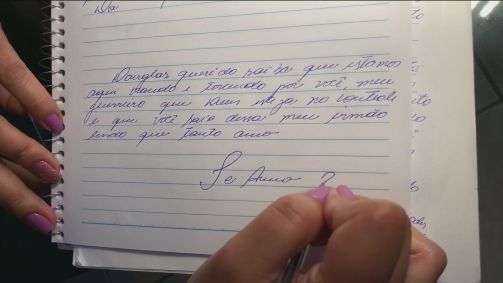 Douglas querido saiba que estamos
aqui orando e torcendo por você, meu
guerreiro que Deus esteja no controle
e que você saia dessa meu irmão
lindo que tanto amo
Te Amo